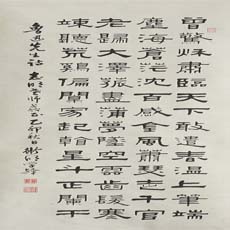 曾驚秋肅臨天下敢遣春溫上筆端
塵海蒼茫沈百感金風蕭瑟走千官
老歸大澤菰蒲盡夢墜空雲齒髮寒
竦聽荒雞偏闃寂起看星斗正闌干
魯迅先生詩
乙卯秋日